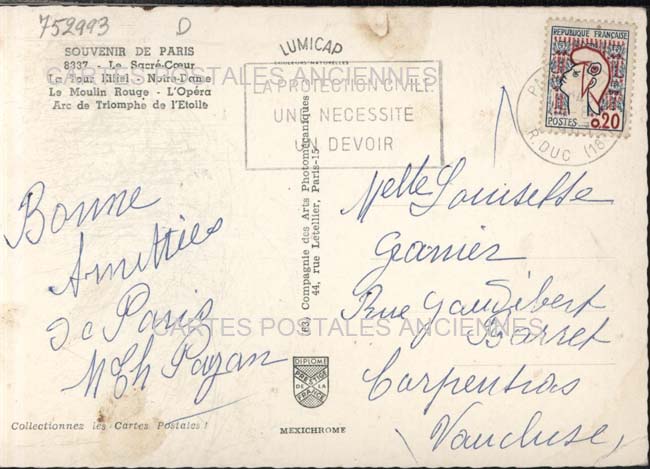 752993 D
SOUVENIR DE PARIS
8337 - Le Sacré-Cœur
La Tour Eiffel - Notre-Dame
Le Moulin Rouge - L'Opéra
Arc de Triomphe de l'Etoile
CARTES POSTALES ANCIENNES
LUMICAP
COULEURS NATURELLES
LA PROTECTION CIVILE
UNE NECESSITÉ
UN DEVOIR
REPUBLIQUE FRANÇAISE
POSTES 0.20
R. DUC (18
Bonne
Amitties
de Paris
M Ch Pazan
Compagnie des Arts Photomécaniques
44, rue Letellier, Paris-15
(63)
Melle Louisette
Garnier
Rue Gaudibert
Barret
Carpentras
(Vaucluse)
CARTES POSTALES ANCIENNES
DIPLOME
PRESTIGE
DE LA
FRANCE
Collectionnez les Cartes Postales !
MEXICHROME